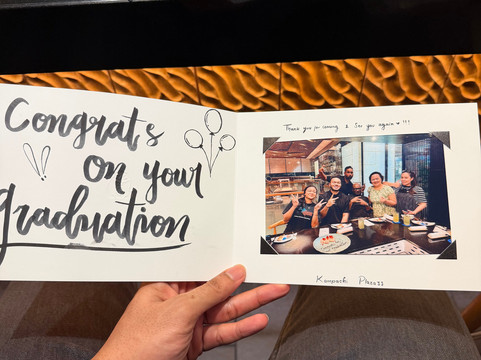 Congrats
on your
graduation
Thank you for coming & See you again ♥ !!!